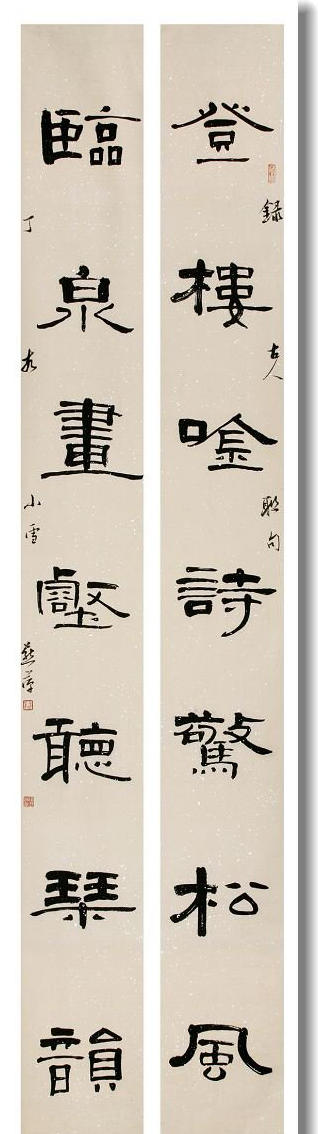 登樓唫詩驚松風
錄古人聯句
臨泉畫壑聽琹韻
丁小雪